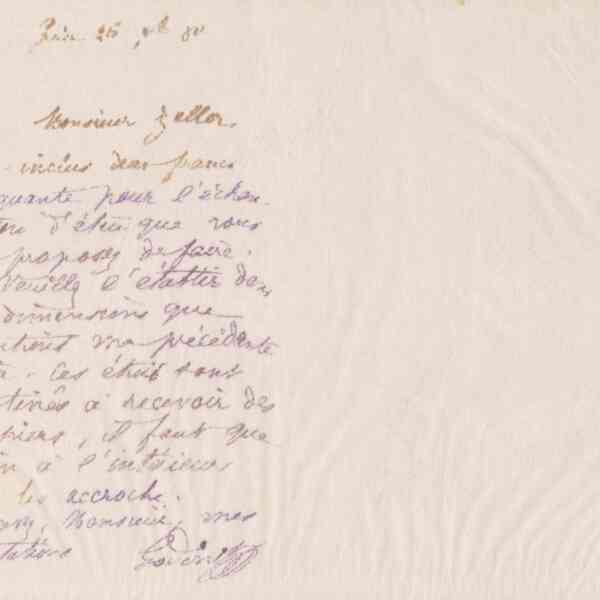 26 80
Monsieur Zeller,
- incius deux francs
quante pour l'échan-
d'étui que vous
proposez de faire.
Veuillez l'établir des
dimensions que
ma précédente
. Ces étuis sont
tinés à recevoir des
piers, il faut que
n à l'intérieur
les accroche.
Monsieur, mes
tations Godin